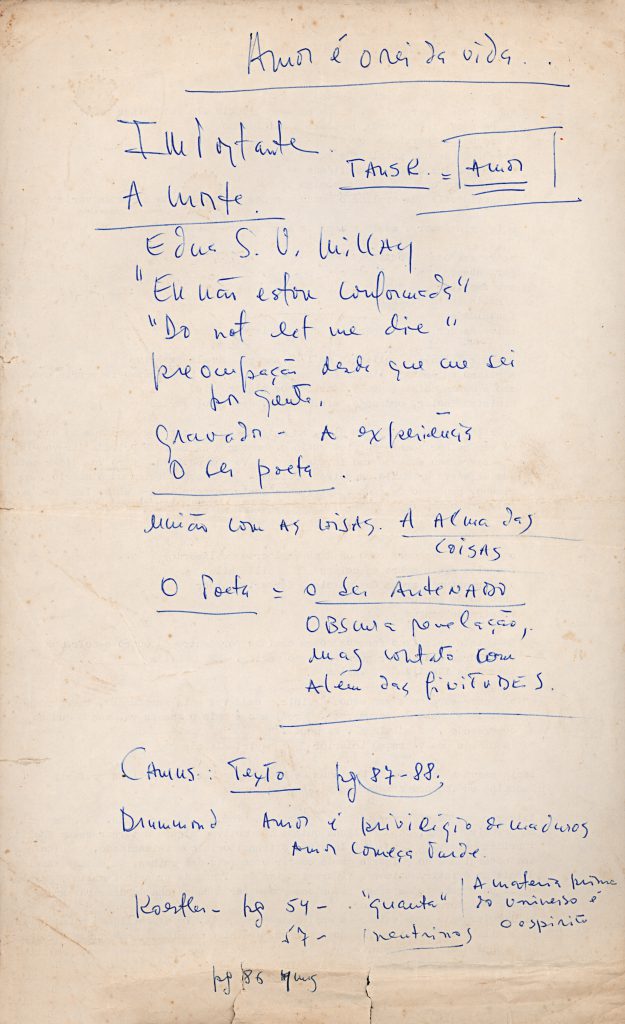 Amor é o rei da vida...
Importante
TANSR. = Amor
A morte.
Edna S. V. Millay
"Eu não estou conformada"
"Do not let me die"
preocupação desde que me sei
por gente.
Gravador - A experiência
O ser poeta.
união com as coisas. A Alma das
coisas
O Poeta = o ser ANTENADO
OBSCURA revelação,
mas contato com
Além das finitudes.
Camus: Texto pg 87-88.
Drummond Amor é privilégio de maduros
Amor começa tarde.
Koestler - pg 54 - "quanta"
57 - neutrinos
A materia prima
do universo é
o espirito
pg 86